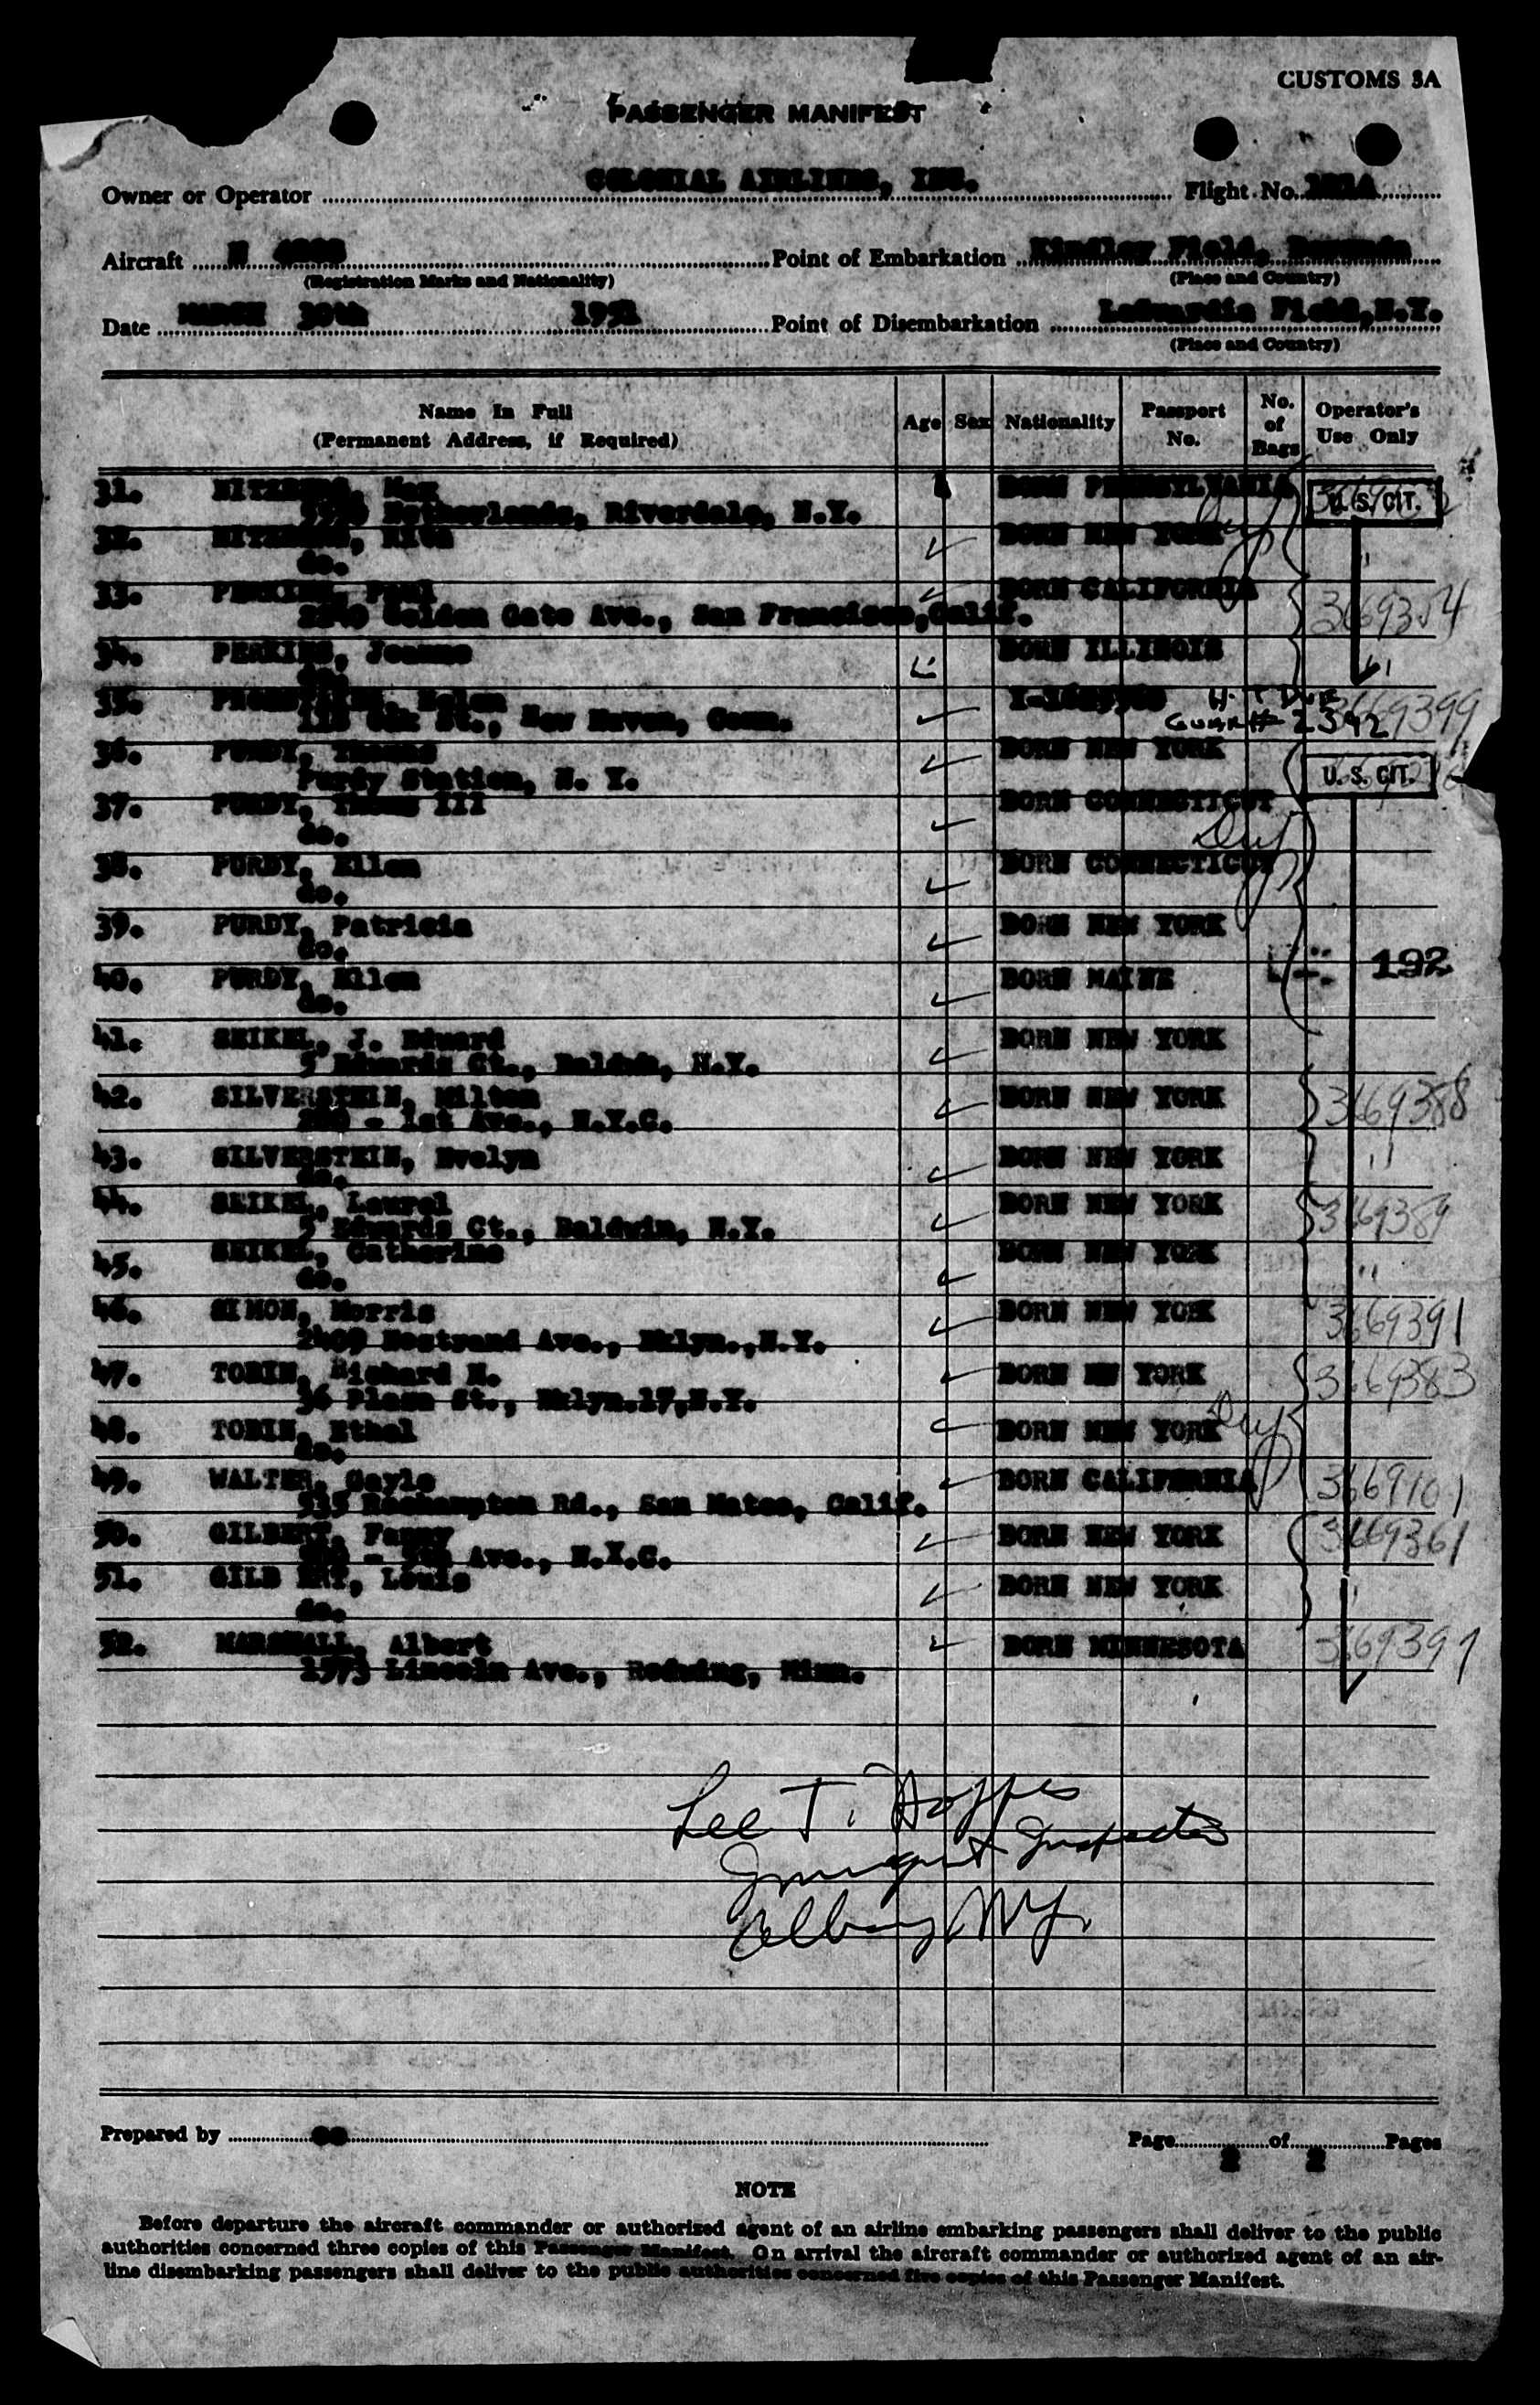 CUSTOMS 3A
PASSENGER MANIFEST
Owner or Operator COLONIAL AIRLINES, INC. Flight No.
Aircraft N Point of Embarkation Kindley Field, Bermuda
(Registration Marks and Nationality) (Place and Country)
Date MARCH 30th 1951 Point of Disembarkation Field, N.Y.
(Place and Country)
Name In Full
(Permanent Address, if Required)
Age Sex Nationality Passport No. No. of Bags Operator's Use Only
31. Max BORN PENNSYLVANIA U. S. CIT.
Netherlands, Riverdale, N.Y.
32. BORN NEW YORK
do.
33. BORN CALIFORNIA 3669354
Golden Gate Ave., San Francisco, Calif.
34. PERKINS, Joanne BORN ILLINOIS
do.
35. Helen
St., New Haven, Conn. 2392 3669399
36. PURDY, Thomas BORN NEW YORK U. S. CIT.
Purdy Station, N. Y.
37. PURDY, III BORN CONNECTICUT
do.
38. PURDY, Ellen BORN CONNECTICUT
do.
39. PURDY, Patricia BORN NEW YORK
do.
40. PURDY, Ellen BORN MAINE 192
do.
41. SEIKEL, J. Edward BORN NEW YORK
5 Edwards Ct., Baldwin, N.Y.
42. SILVERSTEIN, Milton BORN NEW YORK 3669388
- 1st Ave., N.Y.C.
43. SILVERSTEIN, Evelyn BORN NEW YORK "
do.
44. SEIKEL, Laurel BORN NEW YORK 3669389
5 Edwards Ct., Baldwin, N.Y.
45. SEIKEL, Catherine BORN NEW YORK "
do.
46. SIMON, Morris BORN NEW YORK 3669391
2409 Nostrand Ave., Bklyn., N.Y.
47. TOBIN, Richard N. BORN NW YORK 3669383
36 Plaza St., Bklyn.17, N.Y.
48. TOBIN, Ethel BORN NEW YORK
do.
49. WALTER, Gayle BORN CALIFERNIA 3669101
535 Roehampton Rd., San Mateo, Calif.
50. GILBERT, Fanny BORN NEW YORK 3669361
Ave., N.Y.C.
51. GILB ERT, Louis BORN NEW YORK "
do.
52. MARSHALL, Albert BORN MINNESOTA
1573 Lincoln Ave., Redwing, Minn.
Lee T. Hoppes
Immigrant Inspector
Albany NY.
Prepared by Page 2 of 2 Pages
NOTE
Before departure the aircraft commander or authorized agent of an airline embarking passengers shall deliver to the public
authorities concerned three copies of this Passenger Manifest. On arrival the aircraft commander or authorized agent of an air-
line disembarking passengers shall deliver to the public authorities concerned five copies of this Passenger Manifest.